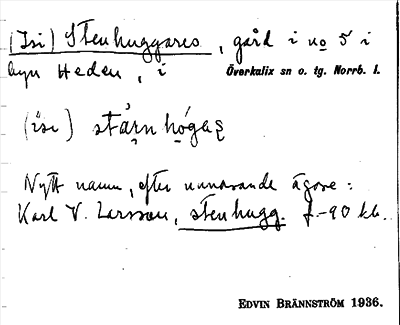 (Isi) Stenhuggares, gård i no 5 i
byn Heden, i Överkalix sn o. tg. Norrb. l.
(ísı)
Nytt namn, efter nuvarande ägare:
Karl V. Larsson, stenhugg. f. -90 kb.
EDVIN BRÄNNSTRÖM 1936.